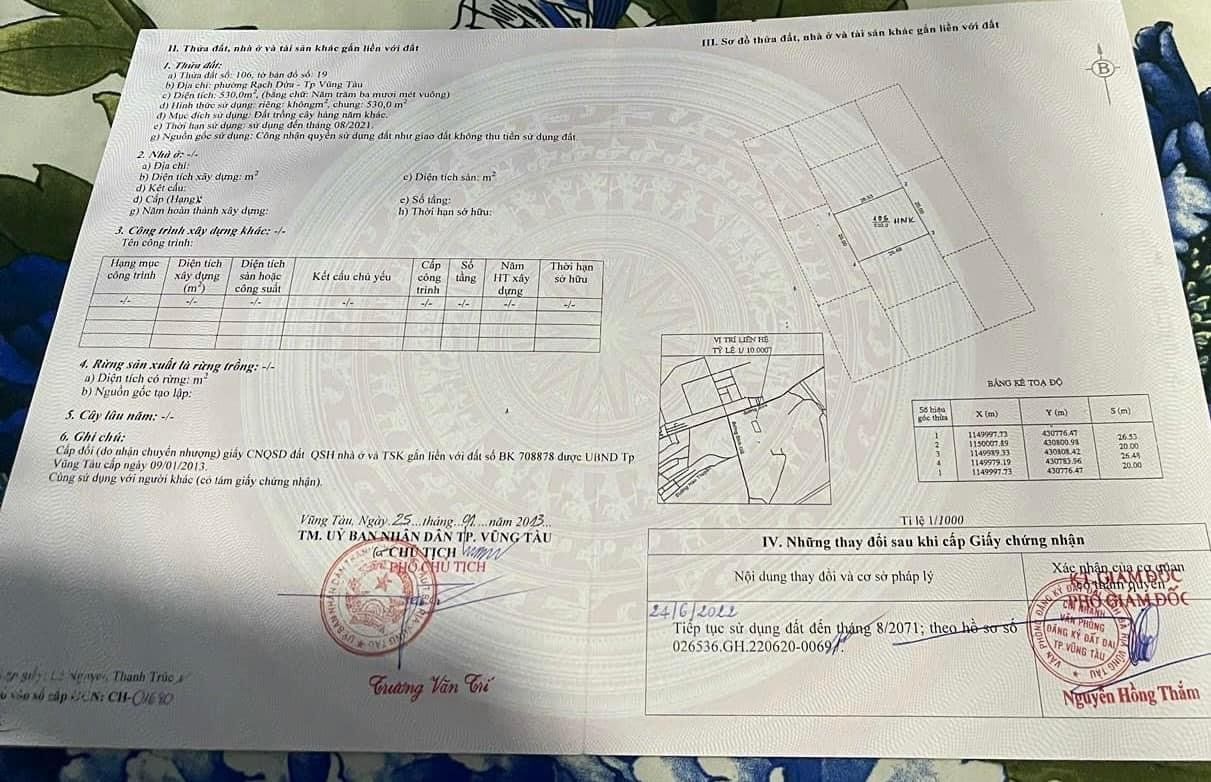 II. Thửa đất, nhà ở và tài sản khác gắn liền với đất
1. Thửa đất:
a) Thửa đất số: 106, tờ bản đồ số: 19
b) Địa chỉ: phường Rạch Dừa - Tp Vũng Tàu
c) Diện tích: 530,0m², (bằng chữ: Năm trăm ba mươi mét vuông)
d) Hình thức sử dụng: riêng: khôngm², chung: 530,0 m²
đ) Mục đích sử dụng: Đất trồng cây hàng năm khác.
e) Thời hạn sử dụng: sử dụng đến tháng 08/2021.
g) Nguồn gốc sử dụng: Công nhận quyền sử dụng đất như giao đất không thu tiền sử dụng đất.
2. Nhà ở: -/-
a) Địa chỉ:
b) Diện tích xây dựng: m²
c) Diện tích sàn: m²
d) Kết cấu:
đ) Cấp (Hạng):
e) Số tầng:
g) Năm hoàn thành xây dựng:
h) Thời hạn sở hữu:
3. Công trình xây dựng khác: -/-
Tên công trình:
Hạng mục công trình
Diện tích xây dựng (m²)
Diện tích sàn hoặc công suất
Kết cấu chủ yếu
Cấp công trình
Số tầng
Năm HT xây dựng
Thời hạn sở hữu
-/- -/- -/- -/- -/- -/- -/- -/-
4. Rừng sản xuất là rừng trồng: -/-
a) Diện tích có rừng: m²
b) Nguồn gốc tạo lập:
5. Cây lâu năm: -/-
6. Ghi chú:
Cấp đổi (do nhận chuyển nhượng) giấy CNQSD đất QSH nhà ở và TSK gắn liền với đất số BK 708878 được UBND Tp
Vũng Tàu cấp ngày 09/01/2013.
Cùng sử dụng với người khác (có 1ám giấy chứng nhận).
Vũng Tàu, Ngày 25 tháng 01 năm 2013
TM. UỶ BAN NHÂN DÂN TP. VŨNG TÀU
CHỦ TỊCH
PHÓ CHỦ TỊCH
Trương Văn Trí
Nguyễn Thanh Trúc
vào sổ cấp GCN: CH-01680
III. Sơ đồ thửa đất, nhà ở và tài sản khác gắn liền với đất
B
1
2
3
4
26.53
20.00
26.48
20.00
106
530.0
HNK
VỊ TRÍ LIÊN HỆ
TỶ LỆ 1/ 10.000
BẢNG KÊ TOẠ ĐỘ
Số hiệu góc thửa
X (m)
Y (m)
S (m)
1 1149997.73 430776.47
26.53
2 1150007.89 430800.98
20.00
3 1149989.33 430808.42
26.48
4 1149979.19 430783.96
20.00
1 1149997.73 430776.47
Tỉ lệ 1/1000
IV. Những thay đổi sau khi cấp Giấy chứng nhận
Nội dung thay đổi và cơ sở pháp lý
Xác nhận của cơ quan
có thẩm quyền
24/6/2022
Tiếp tục sử dụng đất đến tháng 8/2071; theo hồ sơ số
026536.GH.220620-0069
KT. GIÁM ĐỐC
PHÓ GIÁM ĐỐC
CHI NHÁNH
VĂN PHÒNG
ĐĂNG KÝ ĐẤT ĐAI
TP.VŨNG TÀU
Nguyễn Hồng Thắm